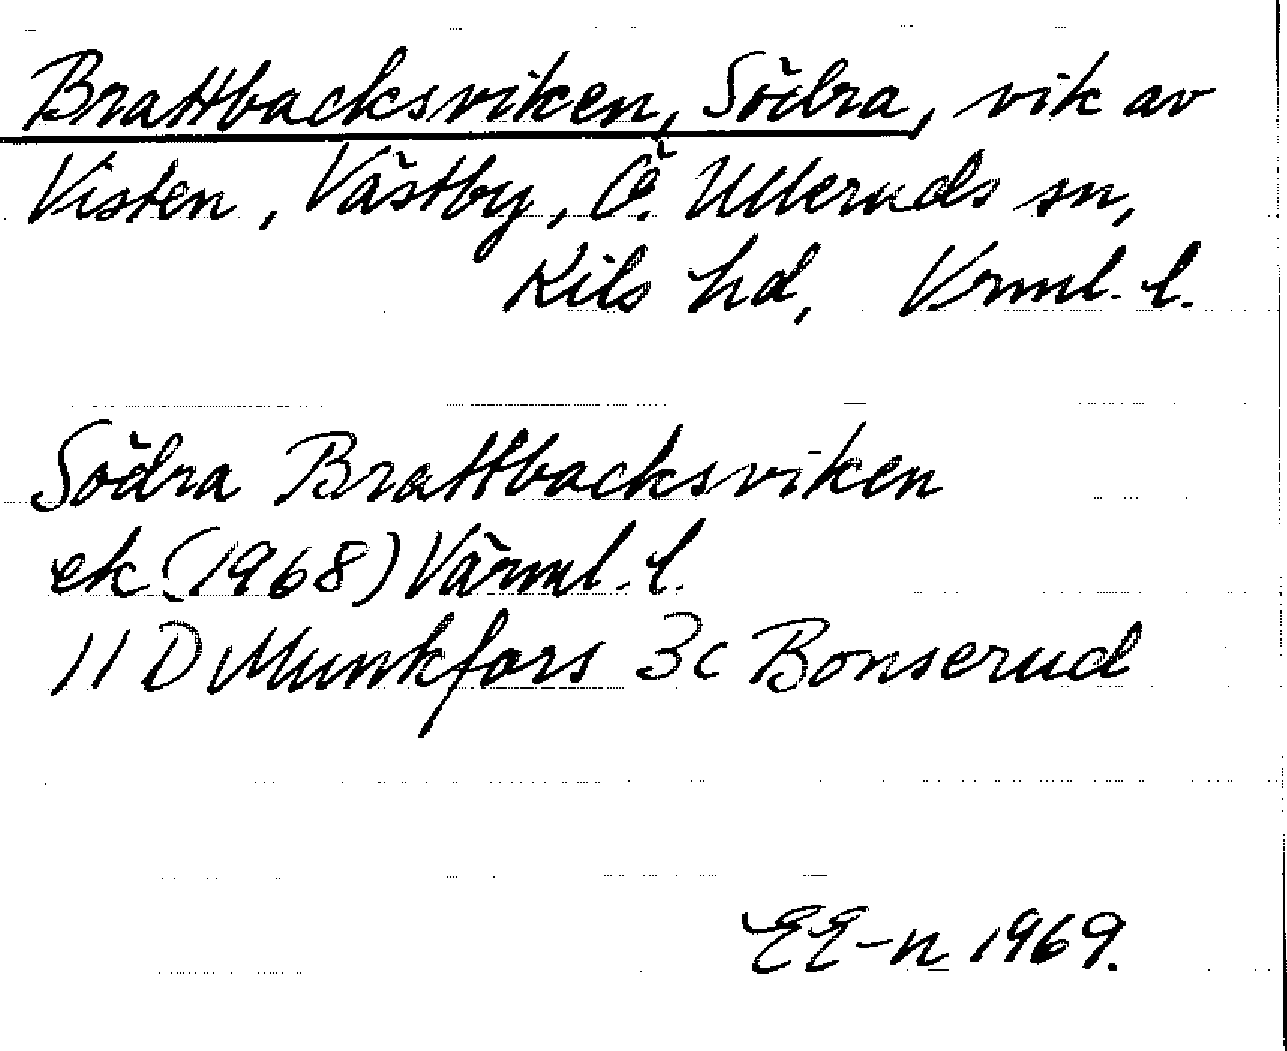 Brattbacksviken, Södra, vik av
Visten, Västby, Ö. Ulleruds sn,
Kils hd, Vrml. l.
Södra Brattbacksviken
ek (1968) Värml. l.
11 D Munkfors 3c Bonserud
EE-n 1969.